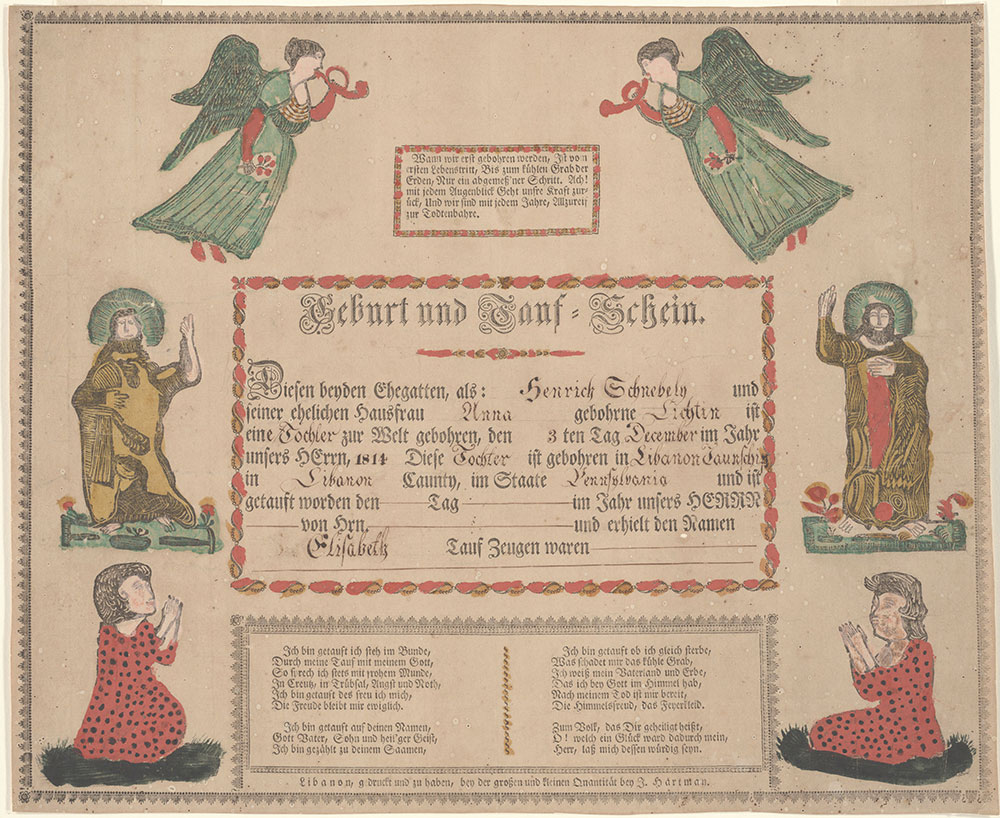 Wann wir erst gebohren werden, Ist vom
ersten Lebenstritt, Bis zum kühlen Grab der
Erden, Nur ein abgemeß'ner Schritt. Ach!
mit jedem Augenblick Geht unsre Kraft zur-
ück, Und wir sind mit jedem Jahre, Allzureif
zur Todtenbahre.
Geburt und Tauf-Schein.
Diesen beyden Ehegatten, als: Henrich Schnebely und
seiner ehelichen Hausfrau Anna gebohrne Lichtin ist
eine Tochter zur Welt gebohren, den 3 ten Tag December im Jahr
unsers HErrn, 1814 Diese Tochter ist gebohren in Libanon Taunschip
in Libanon Caunty, im Staate Pennsylvania und ist
getauft worden den Tag im Jahr unsers HERRN
von Hrn. und erhielt den Namen
Elisabeth Tauf Zeugen waren
Ich bin getauft ich steh im Bunde,
Durch meine Tauf mit meinem Gott,
So sprech ich stets mit frohem Munde,
In Creutz, in Trübsal, Angst und Noth,
Ich bin getauft des freu ich mich,
Die Freude bleibt mir ewiglich.
Ich bin getauft auf deinen Namen,
Gott Vater, Sohn und heil'ger Geist,
Ich bin gezählt zu deinem Saamen,
Ich bin getauft ob ich gleich sterbe,
Was schadet mir das kühle Grab,
Ich weiß mein Vaterland und Erbe,
Das ich bey Gott im Himmel hab,
Nach meinem Tod ist mir bereit,
Die Himmelsfreud, das Feyerkleid.
Zum Volk, das Dir geheiligt heißt,
O! welch ein Glück ward dadurch mein,
Herr, laß mich dessen würdig seyn.
Libanon, gedruckt und zu haben, bey der großen und kleinen Quantität bey J. Hartman.